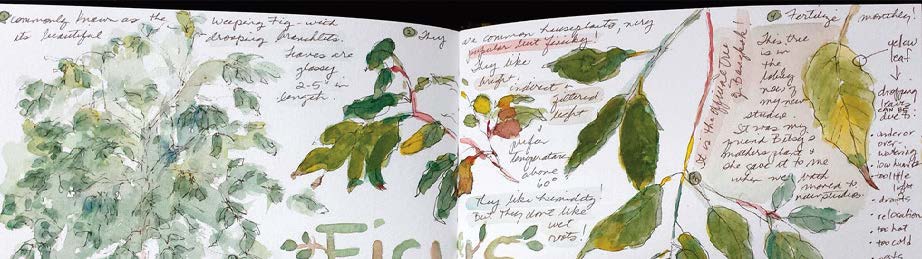 commonly known as the weeping Fig - with
its beautiful drooping branchlets.
Leaves are
glossy
2-5" in
length.
② They
are common houseplants, very
popular but finicky!
They like
bright
indirect or
filtered
light
prefer
temperatures
above
60°
They like humidity
But they don't like
wet
roots!
Ficus
It is the official tree
of Bangkok!
This tree
is in
the
lobby
now of
my new
studio.
It was my
friend Bitsy's
mothers plant &
she gave it to me
when we both
moved to
new studios.
④ Fertilize monthly!
yellow
leaf
dropping
leaves
CAN BE
due to:
• under or
over-
watering
• low humidity
• too little
light
• drafts
• relocation
• too hot
• too cold